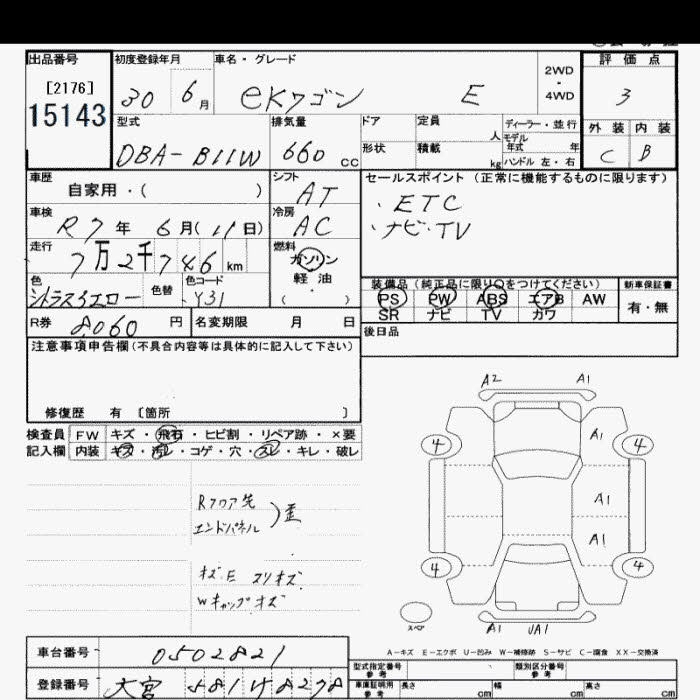 出品番号
[2176]
15143
初度登録年月
30 6月
車名・グレード
eKワゴン E
2WD
・
4WD
評価点
3
外装 内装
C B
型式
DBA-B11W
排気量
660 cc
ドア
形状
定員
人
積載
kg
ディーラー・並行
モデル
年式 年
ハンドル 左・右
車歴
自家用・( )
シフト
AT
セールスポイント (正常に機能するものに限ります)
・ETC
・ナビ・TV
車検
R7年 6月(11日)
冷房
AC
走行
7万2千746km
燃料
ガソリン
軽油
( ・ )
色
シトラスイエロー
色替
色コード
Y31
装備品 (純正品に限り○をつけてください)
PS PW ABS エアB AW
SR ナビ TV カワ
新車保証書
有・無
R券 8060円
名変期限 月 日
後日品
注意事項申告欄(不具合内容等は具体的に記入して下さい)
修復歴 有 〔箇所 〕
検査員
記入欄
FW キズ・飛石・ヒビ割・リペア跡・×要
内装 キズ・汚レ・コゲ・穴・スレ・キレ・破レ
Rフロア先
エンドパネル
)歪
キズE スリキズ
Wキャップキズ
A2 A1
4 A1 4
A1
A1
4 4
スペア
A1 UA1
A-キズ E-エクボ U-凹み W-補修跡 S-サビ C-腐食 XX-交換済
車台番号 0502821
登録番号 大宮 581 け 8278
型式指定番号
参考
類別区分番号
参考
車庫証明用
参考
長さ cm 幅 cm 高さ cm